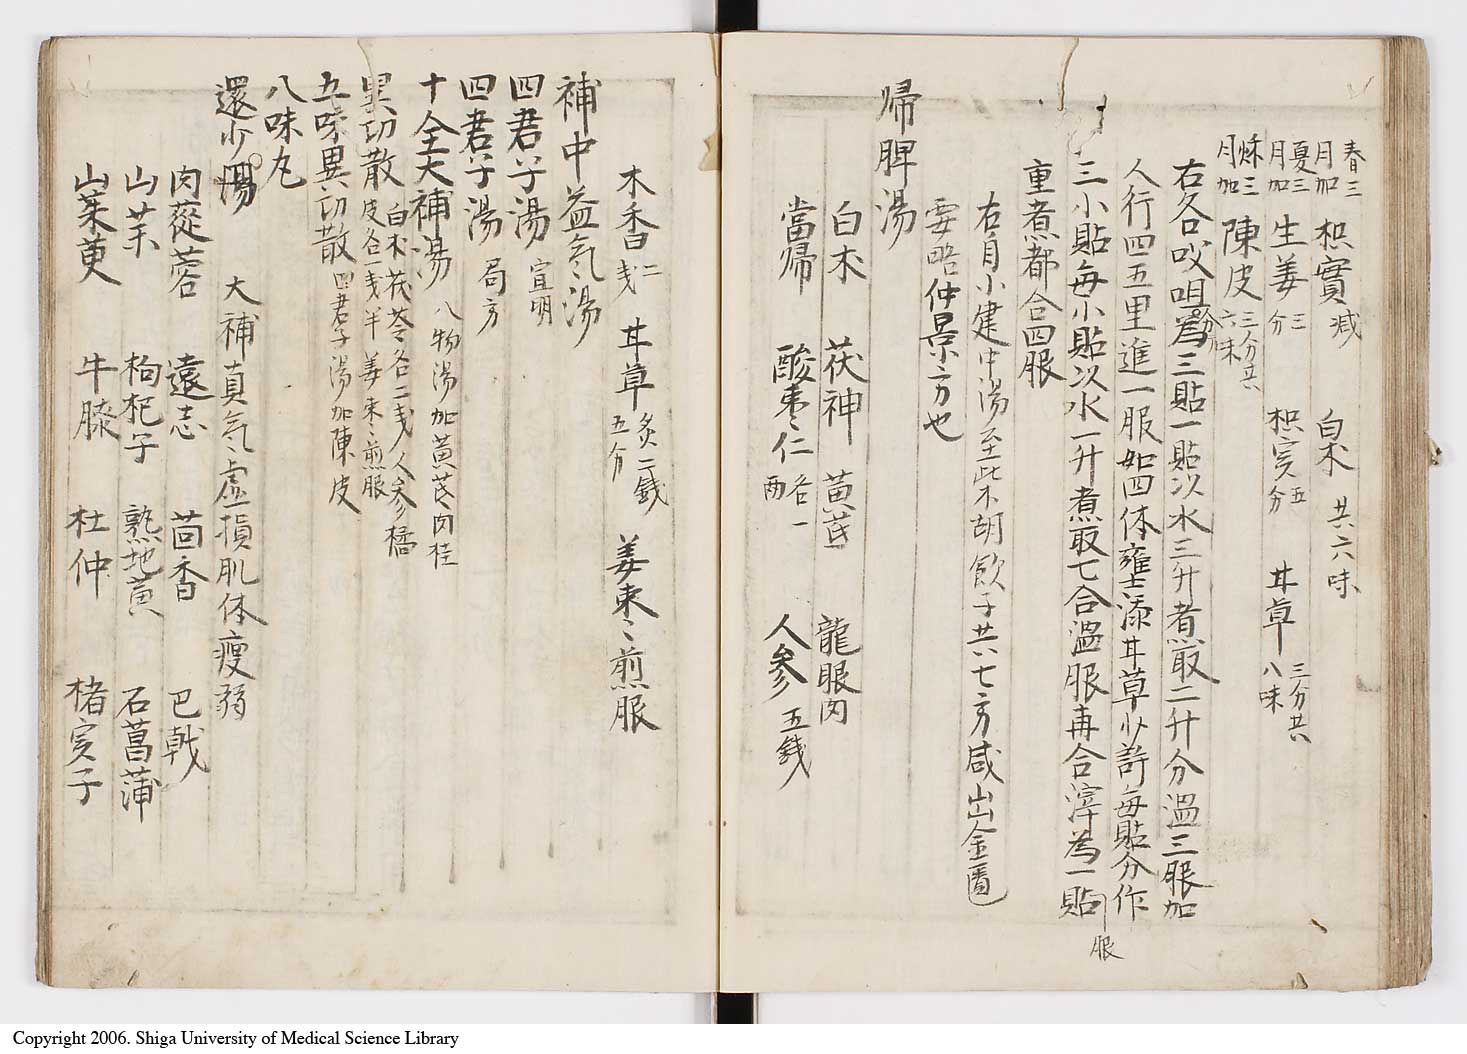 春三月加 枳實減 白朮 共六味
夏三月加 生姜三分 枳实五分 甘草三分共八味
秌三月加 陳皮三分共六味
右各㕮咀分為三貼一貼以水三升煮取二升分温三服如
人行四五里進一服如四体壅添甘草少許每貼分作
三小貼每小貼以水一升煮取七合温服再合滓為一貼服
重煮都合四服
右自小建中湯至此木胡飲子共七方咸出金匱
要略仲景方也
帰脾湯
白朮 茯神 黄芪 龍眼肉
當帰 酸棗仁各一两 人參五錢
木香二戋 甘草炙二錢五分 姜棗煎服
補中益気湯
四君子湯 宣明
四君子湯 局方
十全大補湯 八物湯加黄芪肉桂
異功散 白朮茯苓各二戋人參橘皮各一戋半姜棗煎服
五味異功散 四君子湯加陳皮
八味丸
還少湯 大補真気虚損肌体瘦弱
肉蓯蓉 遠志 茴香 巴戟
山芋 枸杞子 熟地黄 石菖蒲
山茱萸 牛膝 杜仲 楮实子
Copyright 2006. Shiga University of Medical Science Library